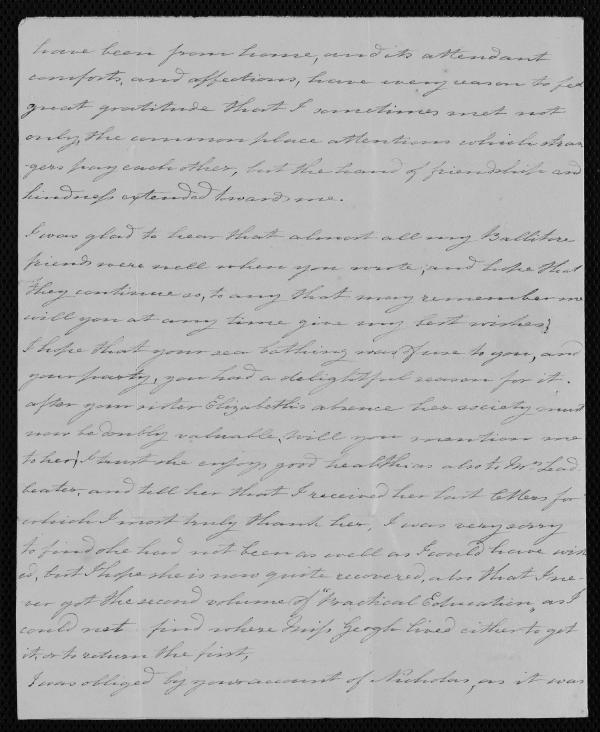 have been from home, and its attendant
comforts, and affections, have every reason to feel
great gratitude that I sometimes met not
only, the common place attentions which stran
-gers pay each other, but the hand of friendship and
kindness extended towards me.
I was glad to hear that almost all my Ballitore
friends were well when you wrote, and hope that
they continue so, to any that may remember me
will you at any time give my best wishes,
I hope that your sea bathing was of use to you, and
your party, you had a delightful season for it.
after your sister Elizabeth's absence her society must
now be doubly valuable, will you mention me
to her, I trust she enjoys good health: as also to Mrs Lead
beater, and tell her that I received her last letters for
which I most truly thank her, I was very sorry
to find she had not been as well as I could have wish
ed, but I hope she is now quite recovered, also that I ne-
ver got the second volume of "Practical Education" as I
could not find where Miss Geogh lived either to get
it, or to return the first,
I was obliged by your account of Nicholas, as it was